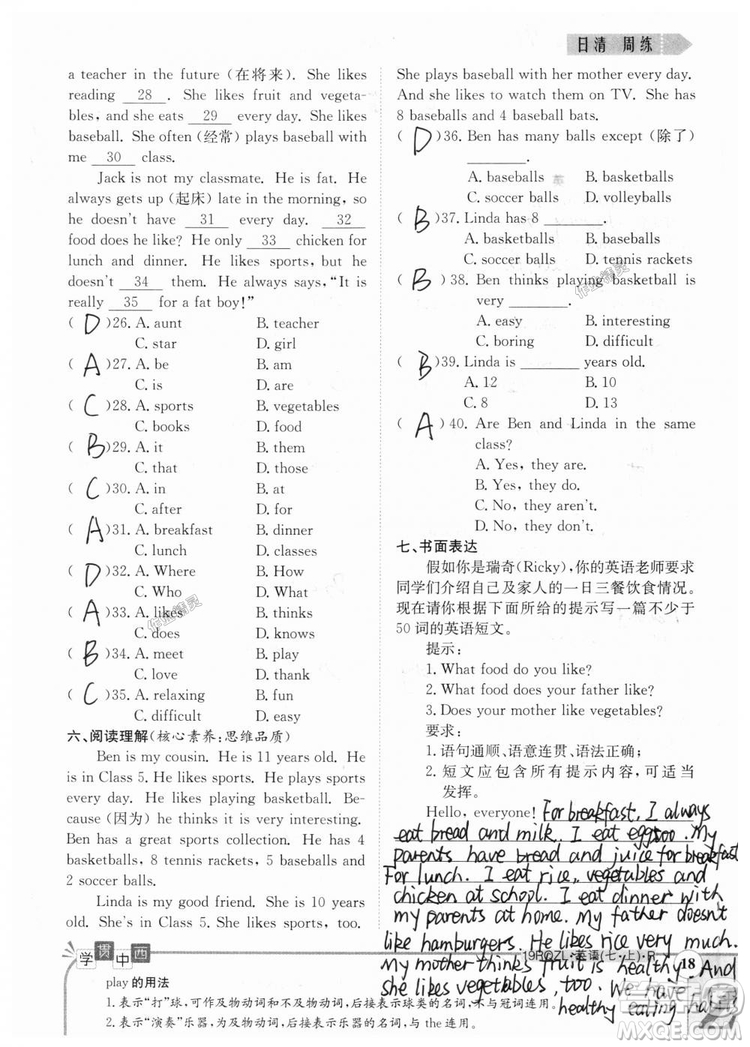 日清 周练
a teacher in the future (在将来). She likes
reading 28 . She likes fruit and vegeta-
bles, and she eats 29 every day. She likes
baseball. She often (经常) plays baseball with
me 30 class.
Jack is not my classmate. He is fat. He
always gets up (起床) late in the morning, so
he doesn't have 31 every day. 32
food does he like? He only 33 chicken for
lunch and dinner. He likes sports, but he
doesn't 34 them. He always says, "It is
really 35 for a fat boy!"
( D )26. A. aunt B. teacher
C. star D. girl
( A )27. A. be B. am
C. is D. are
( C )28. A. sports B. vegetables
C. books D. food
( B )29. A. it B. them
C. that D. those
( C )30. A. in B. at
C. after D. for
( A )31. A. breakfast B. dinner
C. lunch D. classes
( D )32. A. Where B. How
C. Who D. What
( A )33. A. likes B. thinks
C. does D. knows
( B )34. A. meet B. play
C. love D. thank
( C )35. A. relaxing B. fun
C. difficult D. easy
六、阅读理解(核心素养:思维品质)
Ben is my cousin. He is 11 years old. He
is in Class 5. He likes sports. He plays sports
every day. He likes playing basketball. Be-
cause (因为) he thinks it is very interesting.
Ben has a great sports collection. He has 4
basketballs, 8 tennis rackets, 5 baseballs and
2 soccer balls.
Linda is my good friend. She is 10 years
old. She's in Class 5. She likes sports, too.
She plays baseball with her mother every day.
And she likes to watch them on TV. She has
8 baseballs and 4 baseball bats.
( D )36. Ben has many balls except (除了)
________.
A. baseballs B. basketballs
C. soccer balls D. volleyballs
( B )37. Linda has 8 ________.
A. basketballs B. baseballs
C. soccer balls D. tennis rackets
( B )38. Ben thinks playing basketball is
very ________.
A. easy B. interesting
C. boring D. difficult
( B )39. Linda is ________ years old.
A. 12 B. 10
C. 8 D. 13
( A )40. Are Ben and Linda in the same
class?
A. Yes, they are.
B. Yes, they do.
C. No, they aren't.
D. No, they don't.
七、书面表达
假如你是瑞奇(Ricky),你的英语老师要求
同学们介绍自己及家人的一日三餐饮食情况。
现在请你根据下面所给的提示写一篇不少于
50 词的英语短文。
提示:
1. What food do you like?
2. What food does your father like?
3. Does your mother like vegetables?
要求:
1. 语句通顺、语意连贯、语法正确;
2. 短文应包含所有提示内容,可适当
发挥。
Hello, everyone! For breakfast, I always
eat bread and milk. I eat eggs too. My
parents have bread and juice for breakfast
For lunch. I eat rice, vegetables and
chicken at school. I eat dinner with
my parents at home. My father doesn't
like hamburgers. He likes rice very much.
My mother thinks fruit is healthy. And
she likes vegetables, too. We have
healthy eating habits
学贯中西
19RQZL·英语(七·上)·R
18
play 的用法
1. 表示“打”球,可作及物动词和不及物动词,后接表示球类的名词,不与冠词连用。
2. 表示“演奏”乐器,为及物动词,后接表示乐器的名词,与 the 连用。
MXQE.COM